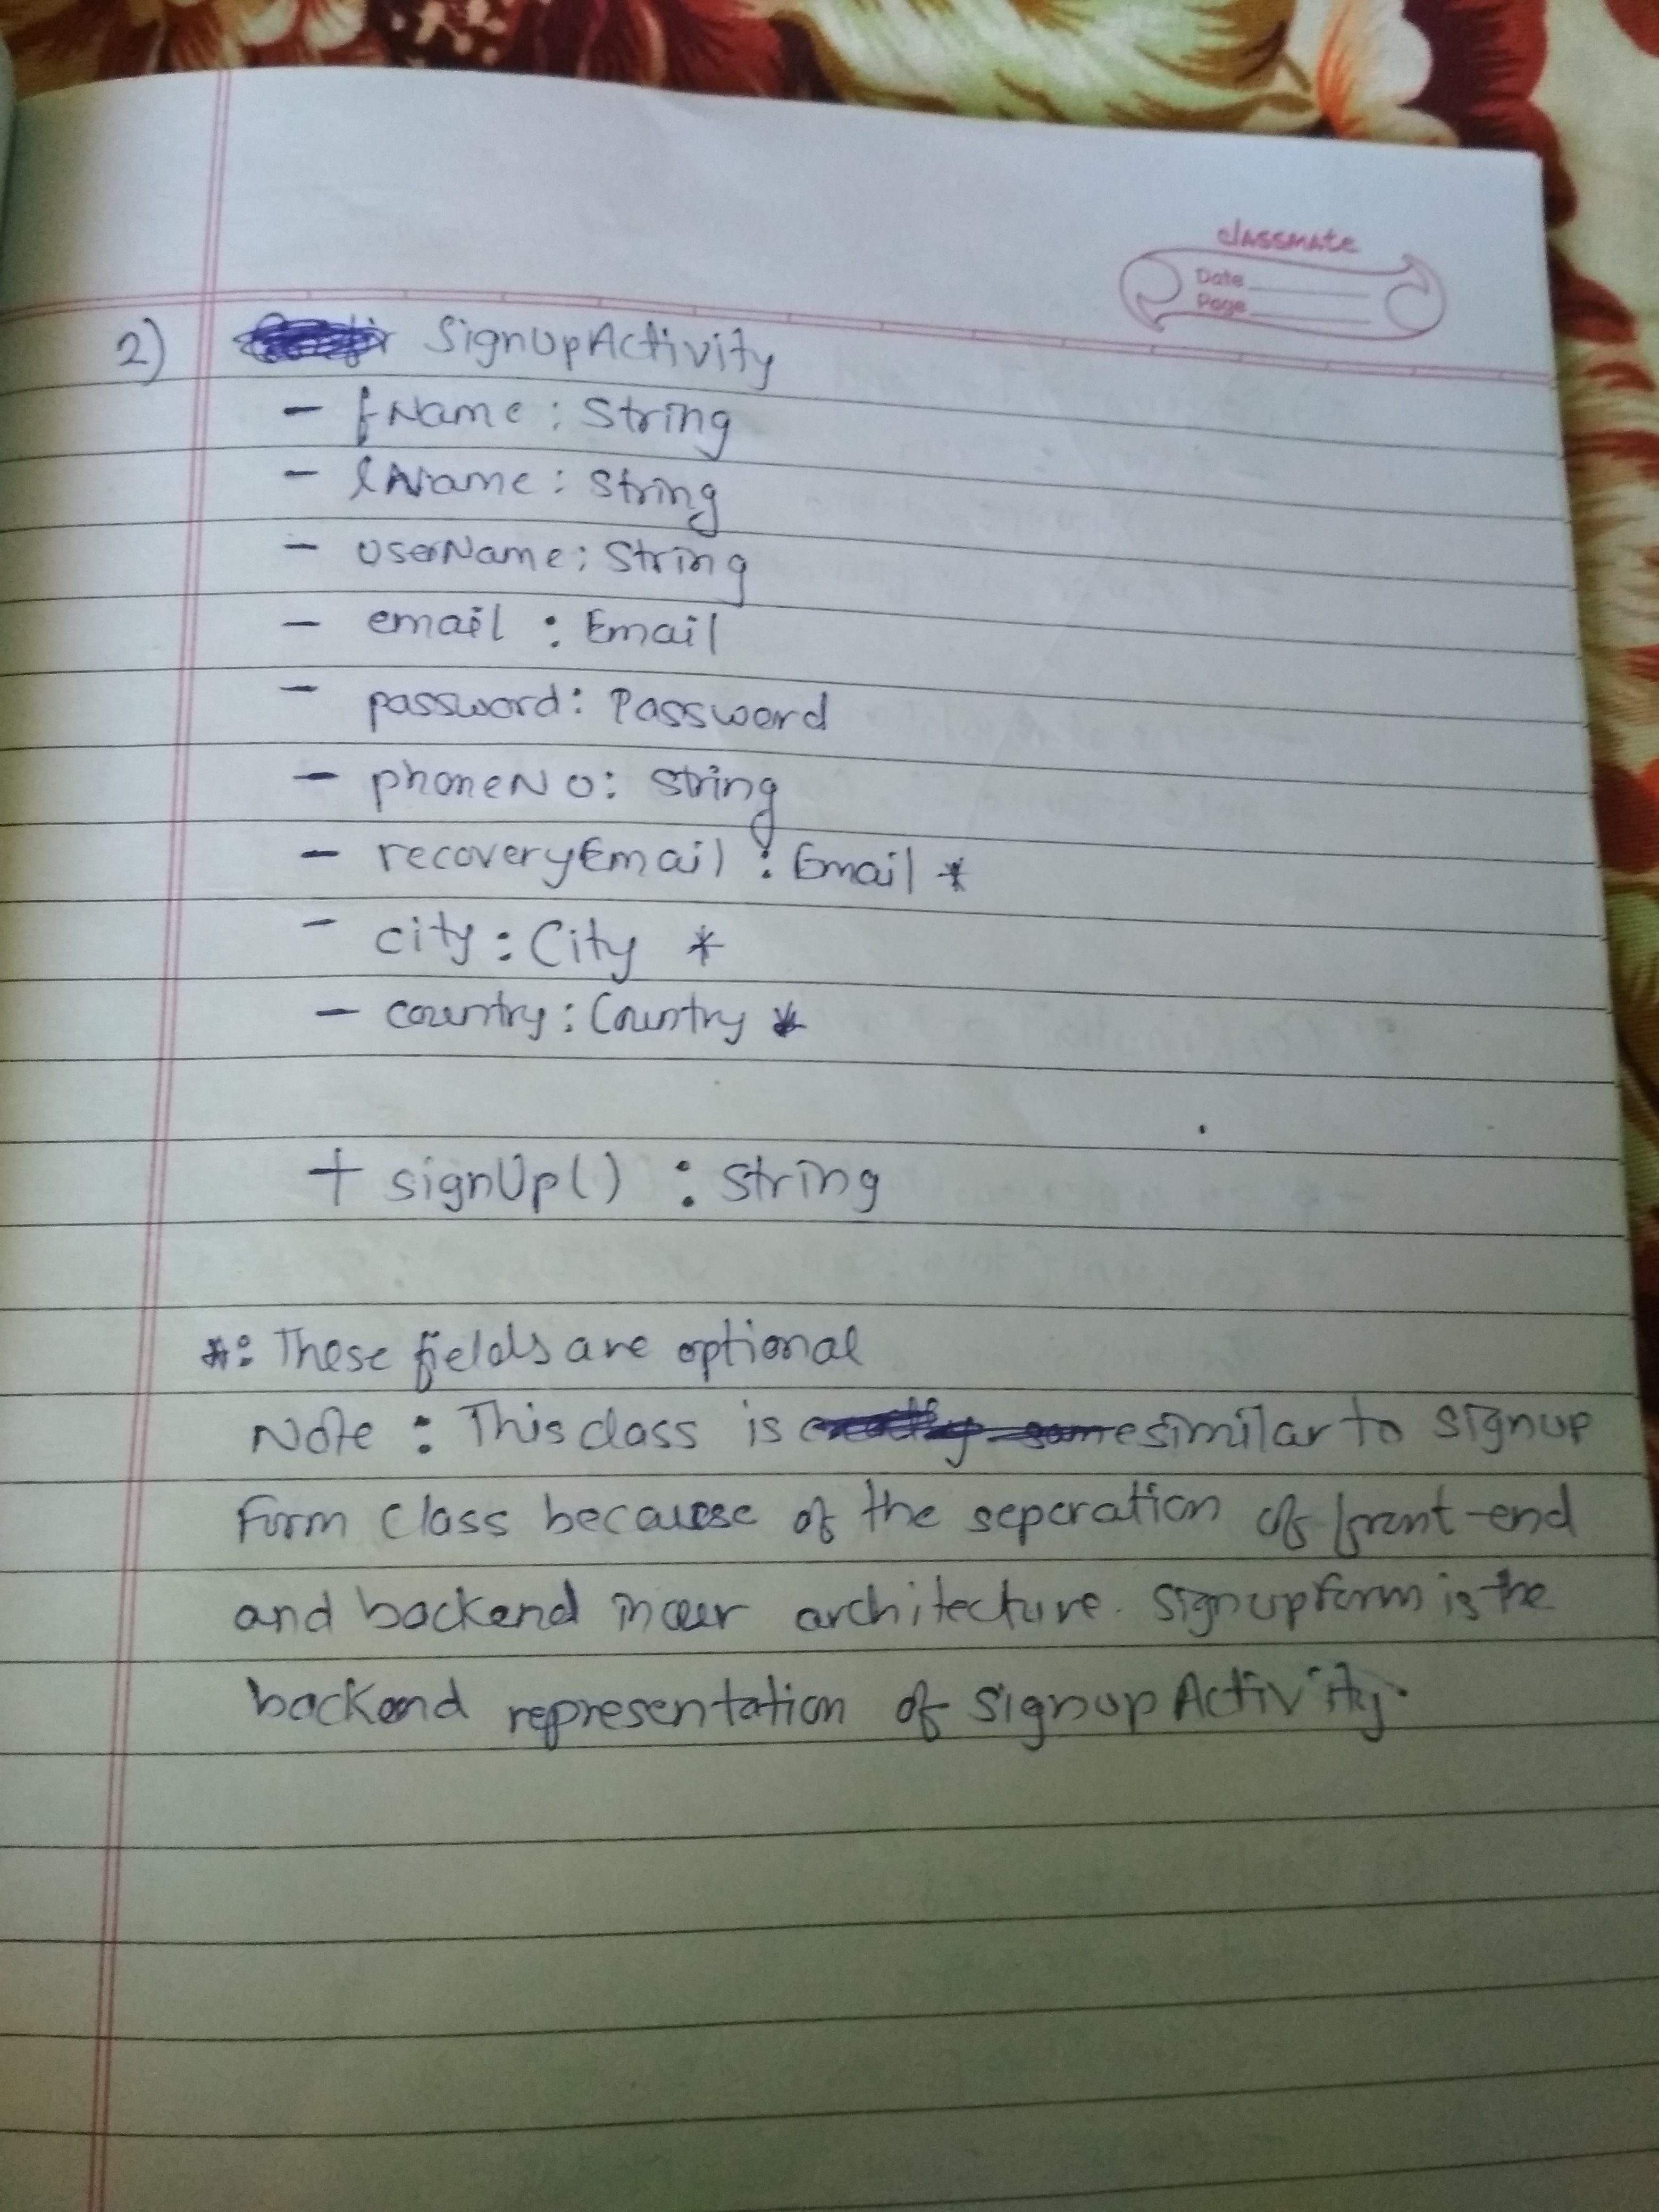 classmate
Date
Page
2) SignUpActivity
- fName : String
- lName : String
- userName : String
- email : Email
- password : Password
- phoneNo : String
- recoveryEmail : Email *
- city : City *
- country : Country *
+ signUp() : String
* : These fields are optional
Note : This class is exactly same similar to signup
form class because of the seperation of front-end
and backend in our architecture. Signupform is the
backend representation of signupActivity.